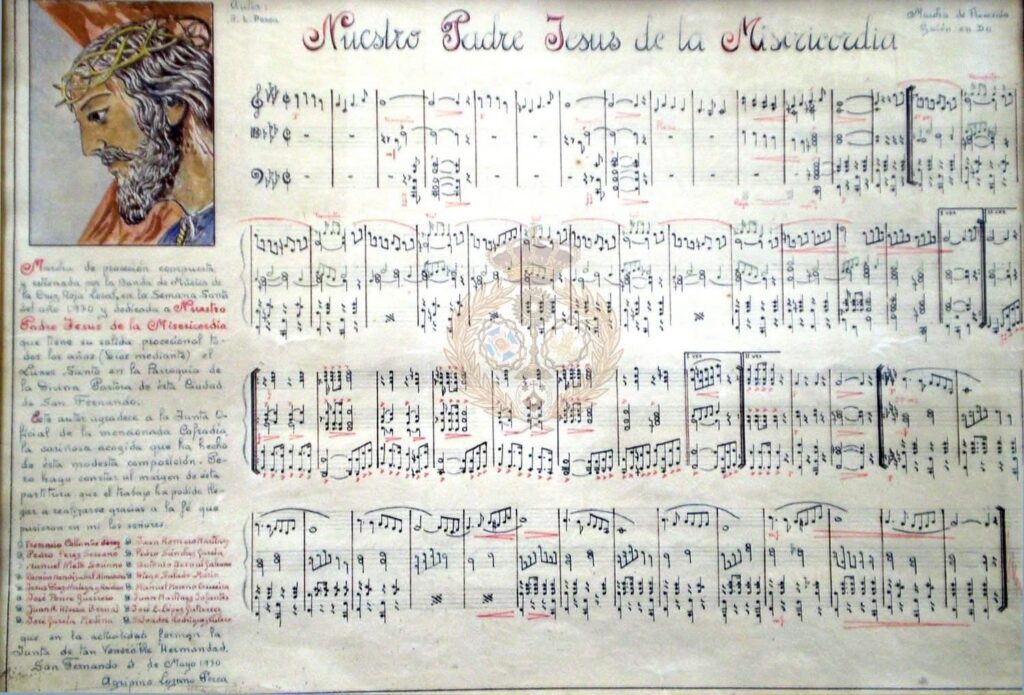 Autor:
A. L. Perea
Nuestro Padre Jesus de la Misericordia
Marcha de Procesión
Guión en Do
Marcha de procesión compuesta
y estrenada por la Banda de Música de
la Cruz Roja Local, en la Semana Santa
del año 1.970 y dedicada a Nuestro
Padre Jesus de la Misericordia
que tiene su salida procesional to-
dos los años (Dios mediante) el
Lunes Santo en la Parroquia de
la Divina Pastora de ésta Ciudad
de San Fernando.
Este autor agradece a la Junta O-
ficial de la mencionada Cofradía
la cariñosa acogida que ha hecho
de ésta modesta composición. Pe-
ro hago constar al margen de ésta
partitura que el trabajo ha podido lle-
gar a realizarse gracias a la fé que
pusieron en mi los señores.
D. Juan Romero
D. Pedro Perez Serrano D. Pedro Sánchez García
Manuel
D. José Ponce Guerrero D. Juan Martinez
D. Juan Bernal D. José L. López Gutierrez
D. José García Medina D. Salvador Rodriguez
que en la actualidad forman la
Junta de tan Venerable Hermandad.
San Fernando de Mayo 1970
Agripino Lozano Perea
1 vez
2 vez
1 vez
2 vez